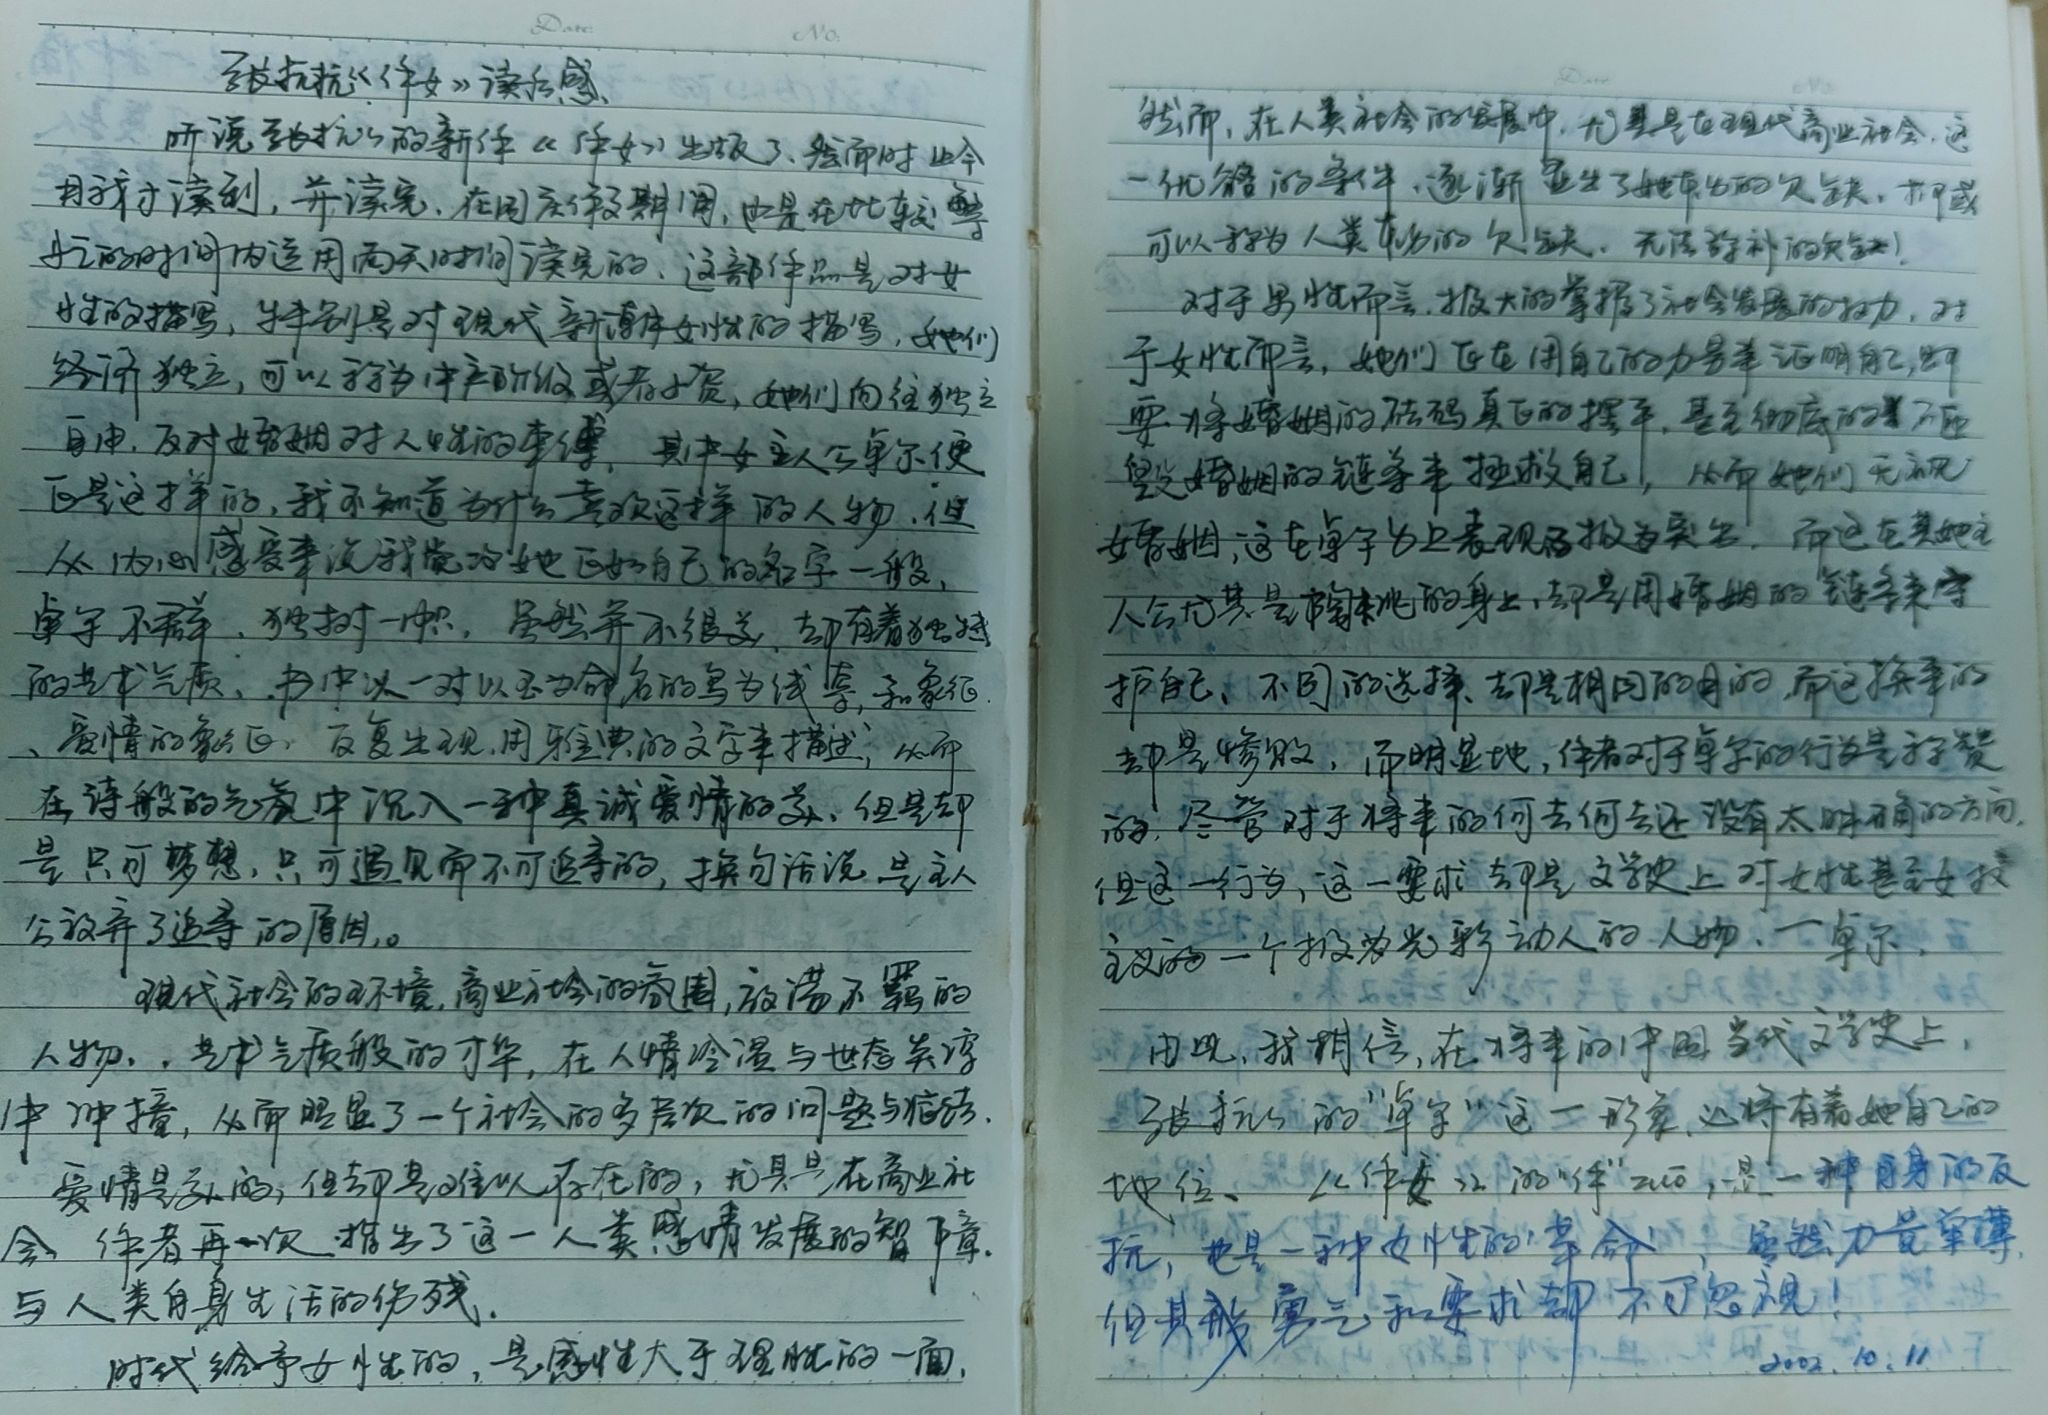 Date: No:
张抗抗《作女》读后感
听说张抗抗的新作《作女》出版了、然而时止今
月我才读到，并读完、在国庆假期间，也是在比较繁
忙的时间内运用两天时间读完的、这部作品是对女
性的描写，特别是对现代新潮女性的描写，她们
经济独立，可以称为中产阶级或者小资，她们向往独立
自由，反对婚姻对人性的束缚，其中女主人公卓尔便
正是这样的，我不知道为什么喜欢这样的人物，但
从内心感受来说我觉得她正如自己的名字一般，
卓尔不群、独树一帜，虽然并不很美，却有着独特
的艺术气质、书中以一对以玉为命名的鸟为线索，和象征
、爱情的象征，反复出现，用雅典的文字来描述，从而
在诗般的气氛中沉入一种真诚爱情的美，但是却
是只可梦想，只可遇见而不可追寻的，换句话说是主人
公放弃了追寻的原因。
现代社会的环境，商业社会的氛围，放荡不羁的
人物，艺术气质般的才华，在人情冷温与世态炎凉
中冲撞，从而昭显了一个社会的多层次的问题与症结．
爱情是美的，但却是难以存在的，尤其是在商业社
会，作者再一次指出了这一人类感情发展的智障．
与人类自身生活的伤残．
时代给予女性的，是感性大于理性的一面，
Date No:
然而，在人类社会的发展中，尤其是在现代商业社会，这
一优美的条件，逐渐显出了她本身的欠缺，抑或
可以称为人类本身的欠缺，无法弥补的欠缺！
对于男性而言，极大的掌握了社会发展的权力，对
于女性而言，她们正在用自己的力量来证明自己，却
要将婚姻的砝码真正的摆平，甚至彻底的
毁婚姻的链条来拯救自己，从而她们无视
婚姻，这在卓尔身上表现得极为突出，而这在其她主
人公尤其是陶桃的身上，却是用婚姻的链条来守
护自己、不同的选择、却是相同的目的，而这换来的
却是惨败，而明显地，作者对于卓尔的行为是称赞
的，尽管对于将来的何去何去还没有太明确的方向，
但这一行为，这一要求却是文学史上对女性甚至女权
主义的一个极为光彩动人的人物，一卓尔，
由此，我相信，在将来的中国当代文学史上，
张抗抗的“卓尔”这一形象，必将有着她自己的
地位、《作女》的“作”，是一种自身的反
抗，也是一种女性的“革命”，虽然力量单薄，
但其勇气和要求却不可忽视！
2002.10.11